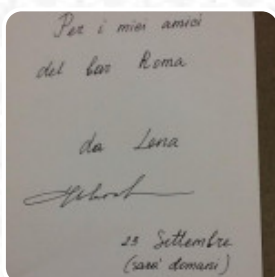 Per i miei amici
del bar Roma
da Lena
23 Settembre
(sara' domani)